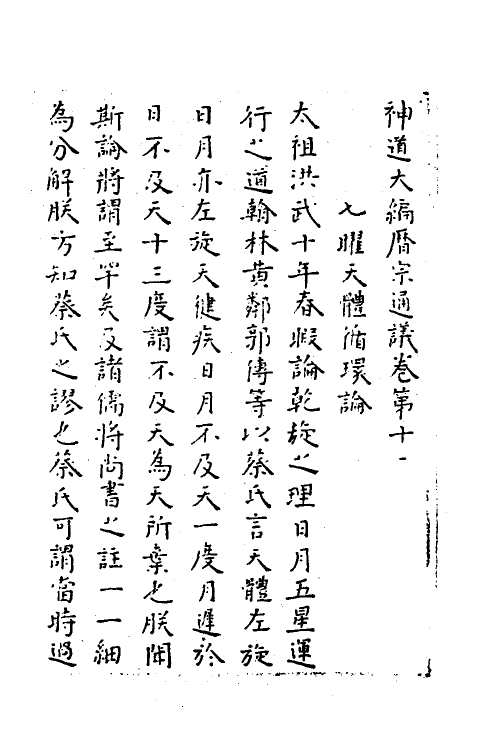 神道大編曆宗通議卷第十一
七曜天體循環論
太祖洪武十年春暇論乾旋之理日月五星運
行之道翰林黄鄰郭傳等以蔡氏言天體左旋
日月亦左旋天健疾日月不及天一度月遲於
日不及天十三度謂不及天為天所棄也朕聞
斯論將謂至罕矣及諸儒將尚書之註一一細
為分解朕方知蔡氏之謬也蔡氏可謂當時過